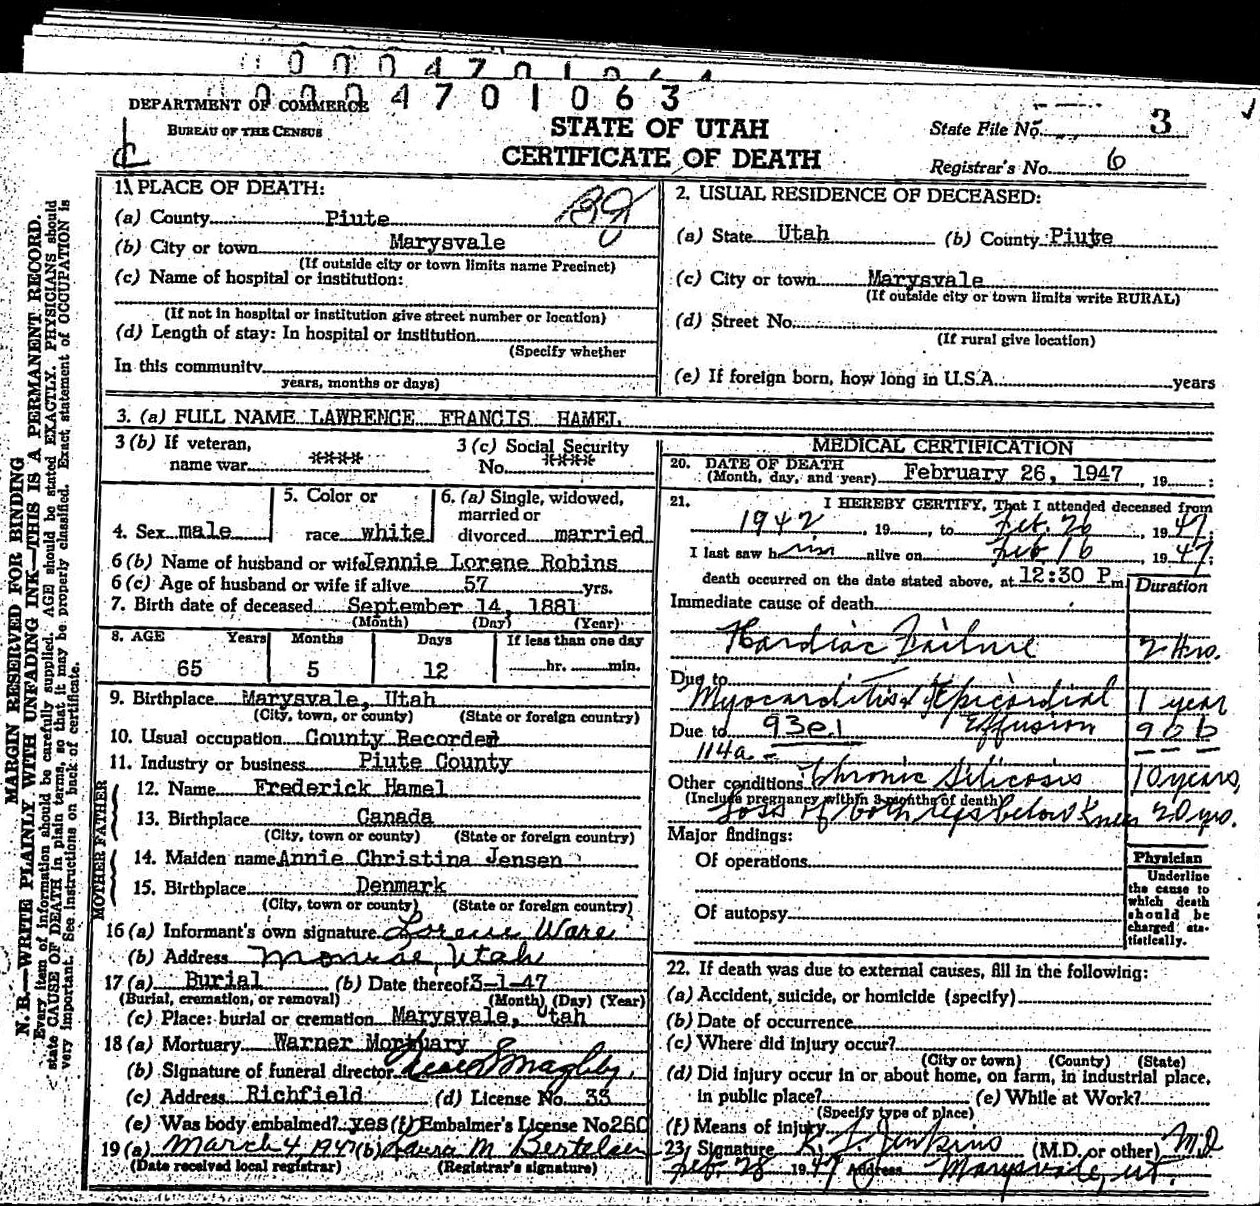 0004701063
DEPARTMENT OF COMMERCE
BUREAU OF THE CENSUS
STATE OF UTAH
CERTIFICATE OF DEATH
State File No. 3
Registrar's No. 6
MARGIN RESERVED FOR BINDING
N. B.—WRITE PLAINLY WITH UNFADING INK—THIS IS A PERMANENT RECORD.
Every item of information should be carefully supplied. AGE should be stated EXACTLY. PHYSICIANS should
state CAUSE OF DEATH in plain terms, so that it may be properly classified. Exact statement of OCCUPATION is
very important. See instructions on back of certificate.
1. PLACE OF DEATH:
(a) County Piute
(b) City or town Marysvale
(If outside city or town limits name Precinct)
(c) Name of hospital or institution:
(If not in hospital or institution give street number or location)
(d) Length of stay: In hospital or institution
(Specify whether
In this community
years, months or days)
2. USUAL RESIDENCE OF DECEASED:
(a) State Utah (b) County Piute
(c) City or town Marysvale
(If outside city or town limits write RURAL)
(d) Street No.
(If rural give location)
(e) If foreign born, how long in U.S.A. years
3. (a) FULL NAME LAWRENCE FRANCIS HAMEL
3 (b) If veteran,
name war ****
3 (c) Social Security
No. ****
4. Sex male
5. Color or
race white
6. (a) Single, widowed,
married or
divorced married
6 (b) Name of husband or wife Jennie Lorene Robins
6 (c) Age of husband or wife if alive 57 yrs.
7. Birth date of deceased September 14, 1881
(Month) (Day) (Year)
8. AGE Years Months Days If less than one day
65 5 12 hr. min.
9. Birthplace Marysvale, Utah
(City, town, or county) (State or foreign country)
10. Usual occupation County Recorder
11. Industry or business Piute County
FATHER
12. Name Frederick Hamel
13. Birthplace Canada
(City, town or county) (State or foreign country)
MOTHER
14. Maiden name Annie Christina Jensen
15. Birthplace Denmark
(City, town or county) (State or foreign country)
16 (a) Informant's own signature Lorene Ware
(b) Address Monroe, Utah
17 (a) Burial (b) Date thereof 3-1-47
(Burial, cremation, or removal) (Month) (Day) (Year)
(c) Place: burial or cremation Marysvale, Utah
18 (a) Mortuary Warner Mortuary
(b) Signature of funeral director
(c) Address Richfield (d) License No. 33
(e) Was body embalmed? yes (f) Embalmer's License No 260
19 (a) March 4, 1947 (b) Laura M. Bertelsen
(Date received local registrar) (Registrar's signature)
MEDICAL CERTIFICATION
20. DATE OF DEATH
(Month, day, and year) February 26, 1947, 19 :
21. I HEREBY CERTIFY, That I attended deceased from
1942, 19 , to Feb. 26, 1947;
I last saw him alive on Feb 16, 1947;
death occurred on the date stated above, at 12:30 P m
Duration
Immediate cause of death
Kardiac Failure 2 Hrs.
Due to
Myocarditis & Epicardial 1 year
Due to 93e1 Effusion 96b
114a
Other conditions Chronic Silicosis 10 years,
(Include pregnancy within 3 months of death)
Loss of both legs below Knees 20 yrs.
Major findings:
Of operations
Of autopsy
Physician
Underline
the cause to
which death
should be
charged sta-
tistically.
22. If death was due to external causes, fill in the following:
(a) Accident, suicide, or homicide (specify)
(b) Date of occurrence
(c) Where did injury occur?
(City or town) (County) (State)
(d) Did injury occur in or about home, on farm, in industrial place,
in public place? (e) While at Work?
(Specify type of place)
(f) Means of injury
23. Signature Jenkins (M.D. or other) M.D
Feb. 28 1947 Address Marysvale, ut.